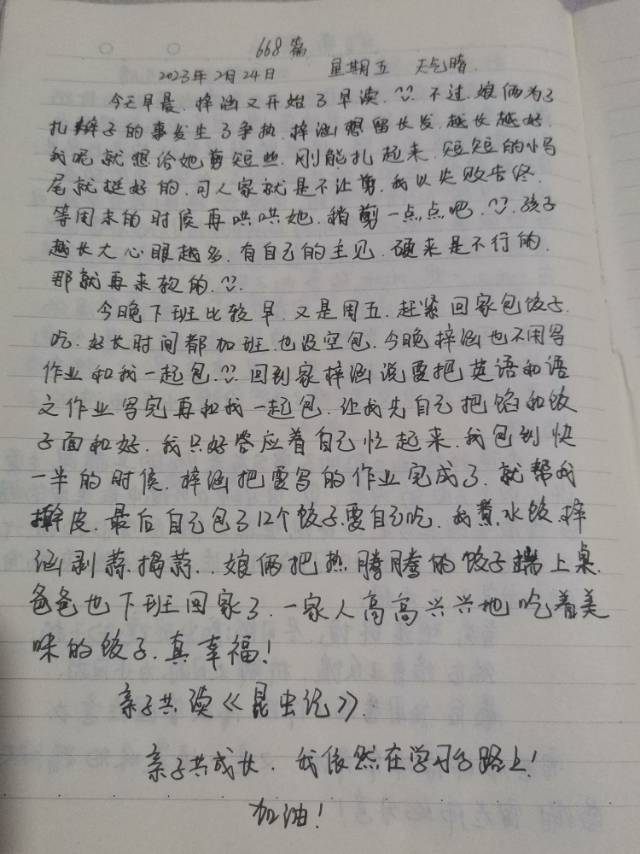 668篇
2023年2月24日 星期五 天气晴
今天早晨、梓涵又开始了早读、不过、娘俩为了
扎辫子的事发生了争执、梓涵想留长发、越长越好、
我呢就想给她剪短些、刚能扎起来、短短的小马
尾就挺好的、可人家就是不让剪、我以失败告终、
等周末的时侯再哄哄她、稍剪一点点吧、孩子
越长大心眼越多、有自己的主见、硬来是不行的、
那就再来软的、
今晚下班比较早、又是周五、赶紧回家包饺子
吃、好长时间都加班、也没空包、今晚梓涵也不用写
作业和我一起包、回到家梓涵说要把英语和语
文作业写完再和我一起包、让我先自己把馅和饺
子面和好、我只好答应着自己忙起来、我包到快
一半的时侯、梓涵把要写的作业完成了、就帮我
擀皮、最后自己包了12个饺子要自己吃、我煮水饺、梓
涵剥蒜、捣蒜、、娘俩把热腾腾的饺子端上桌、
爸爸也下班回家了、一家人高高兴兴地吃着美
味的饺子、真幸福！
亲子共读《昆虫记》、
亲子共成长、我依然在学习的路上！
加油！